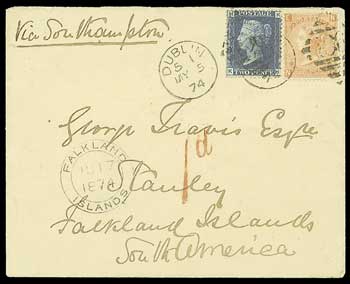 Via Southampton.
DUBLIN
MY 5
74
POSTAGE
TWO PENCE
George Travis Esqre
1d
FALKLAND
1874
ISLANDS
Stanley
Falkland Islands
South America